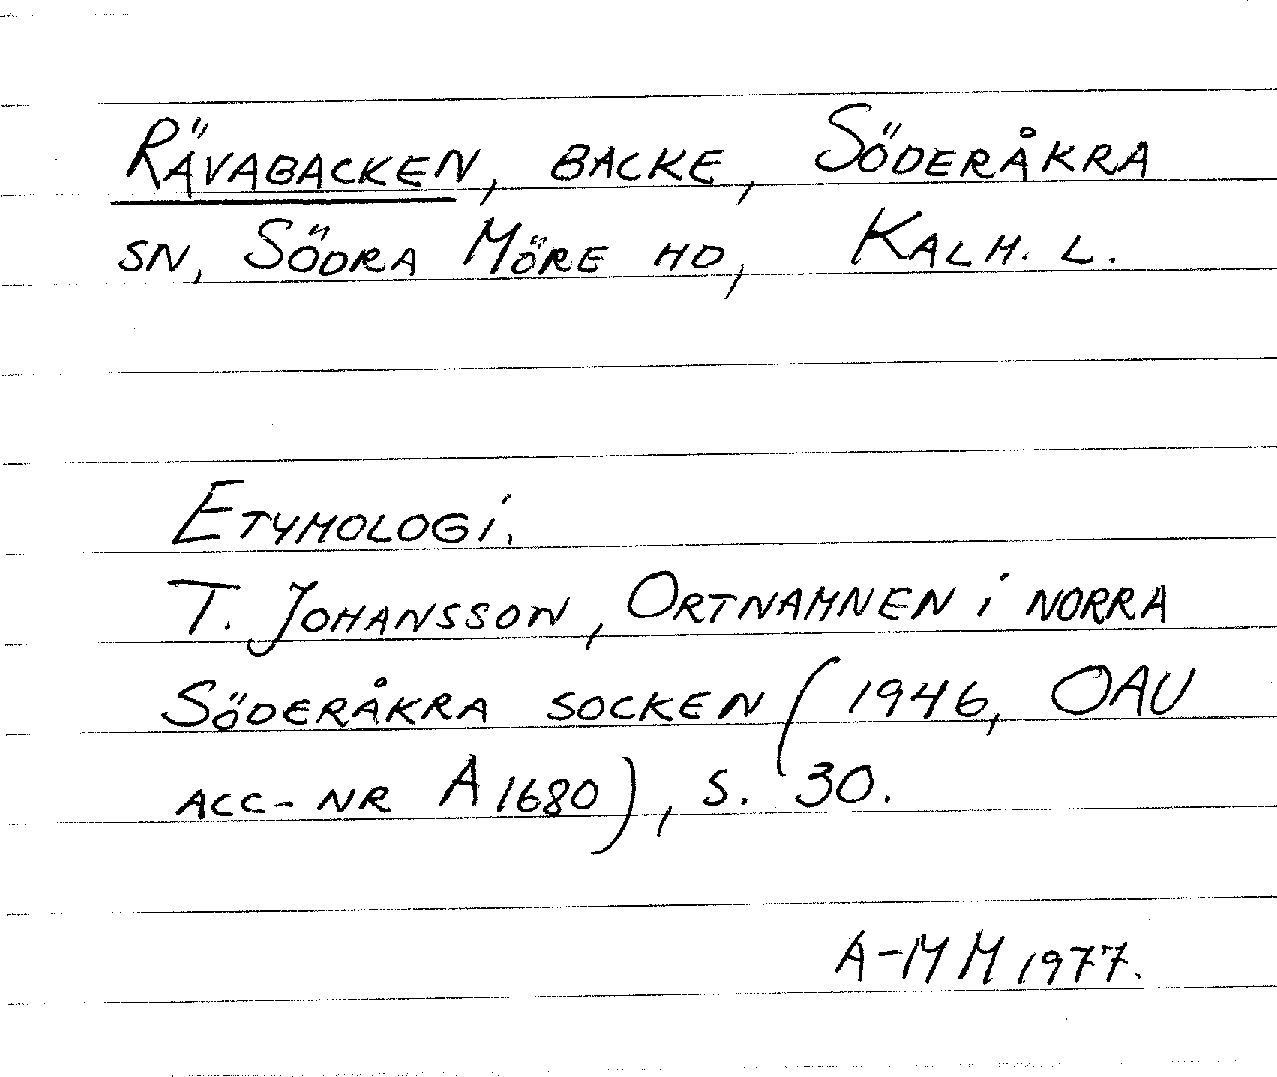 Rävabacken, backe, Söderåkra
sn, Södra Möre hd, Kalm. l.
Etymologi.
T. Johansson, Ortnamnen i norra
Söderåkra socken (1946, OAU
acc-nr A1680), s. 30.
A-MM 1977.